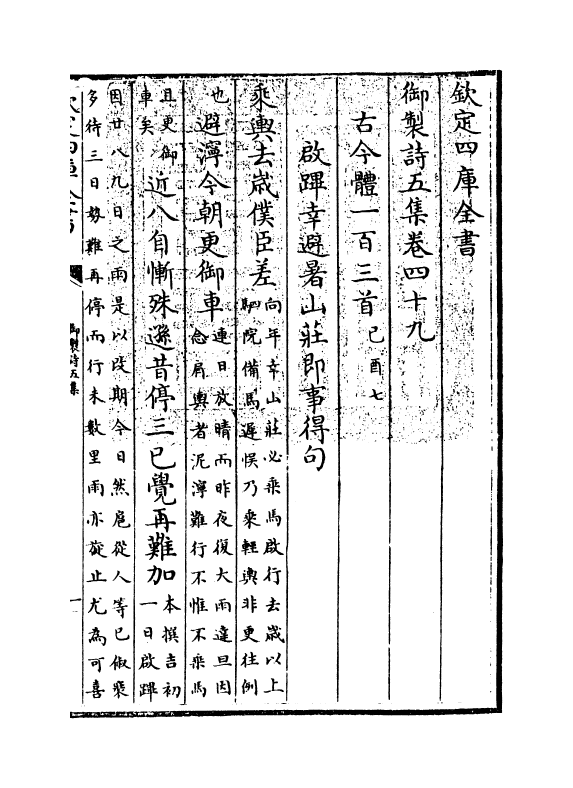 欽定四庫全書
御製詩五集卷四十九
古今體一百三首己酉七
啟蹕幸避暑山莊即事得句
乘輿去嵗僕臣差向年幸山莊必乘馬啟行去嵗以上
駟院備馬遲悞乃乘輕輿非更往例
也避濘今朝更御車連日放晴而昨夜復大雨達旦因
念肩輿者泥濘難行不惟不乘馬
且更御
車矣近八自慚殊遜昔停三已覺再難加本撰吉初
一日啟蹕
因廿八九日之雨是以改期今日然扈從人等已俶裝
多待三日勢難再停而行未數里雨亦旋止尤為可喜
欽定四庫全書
御製詩五集
一